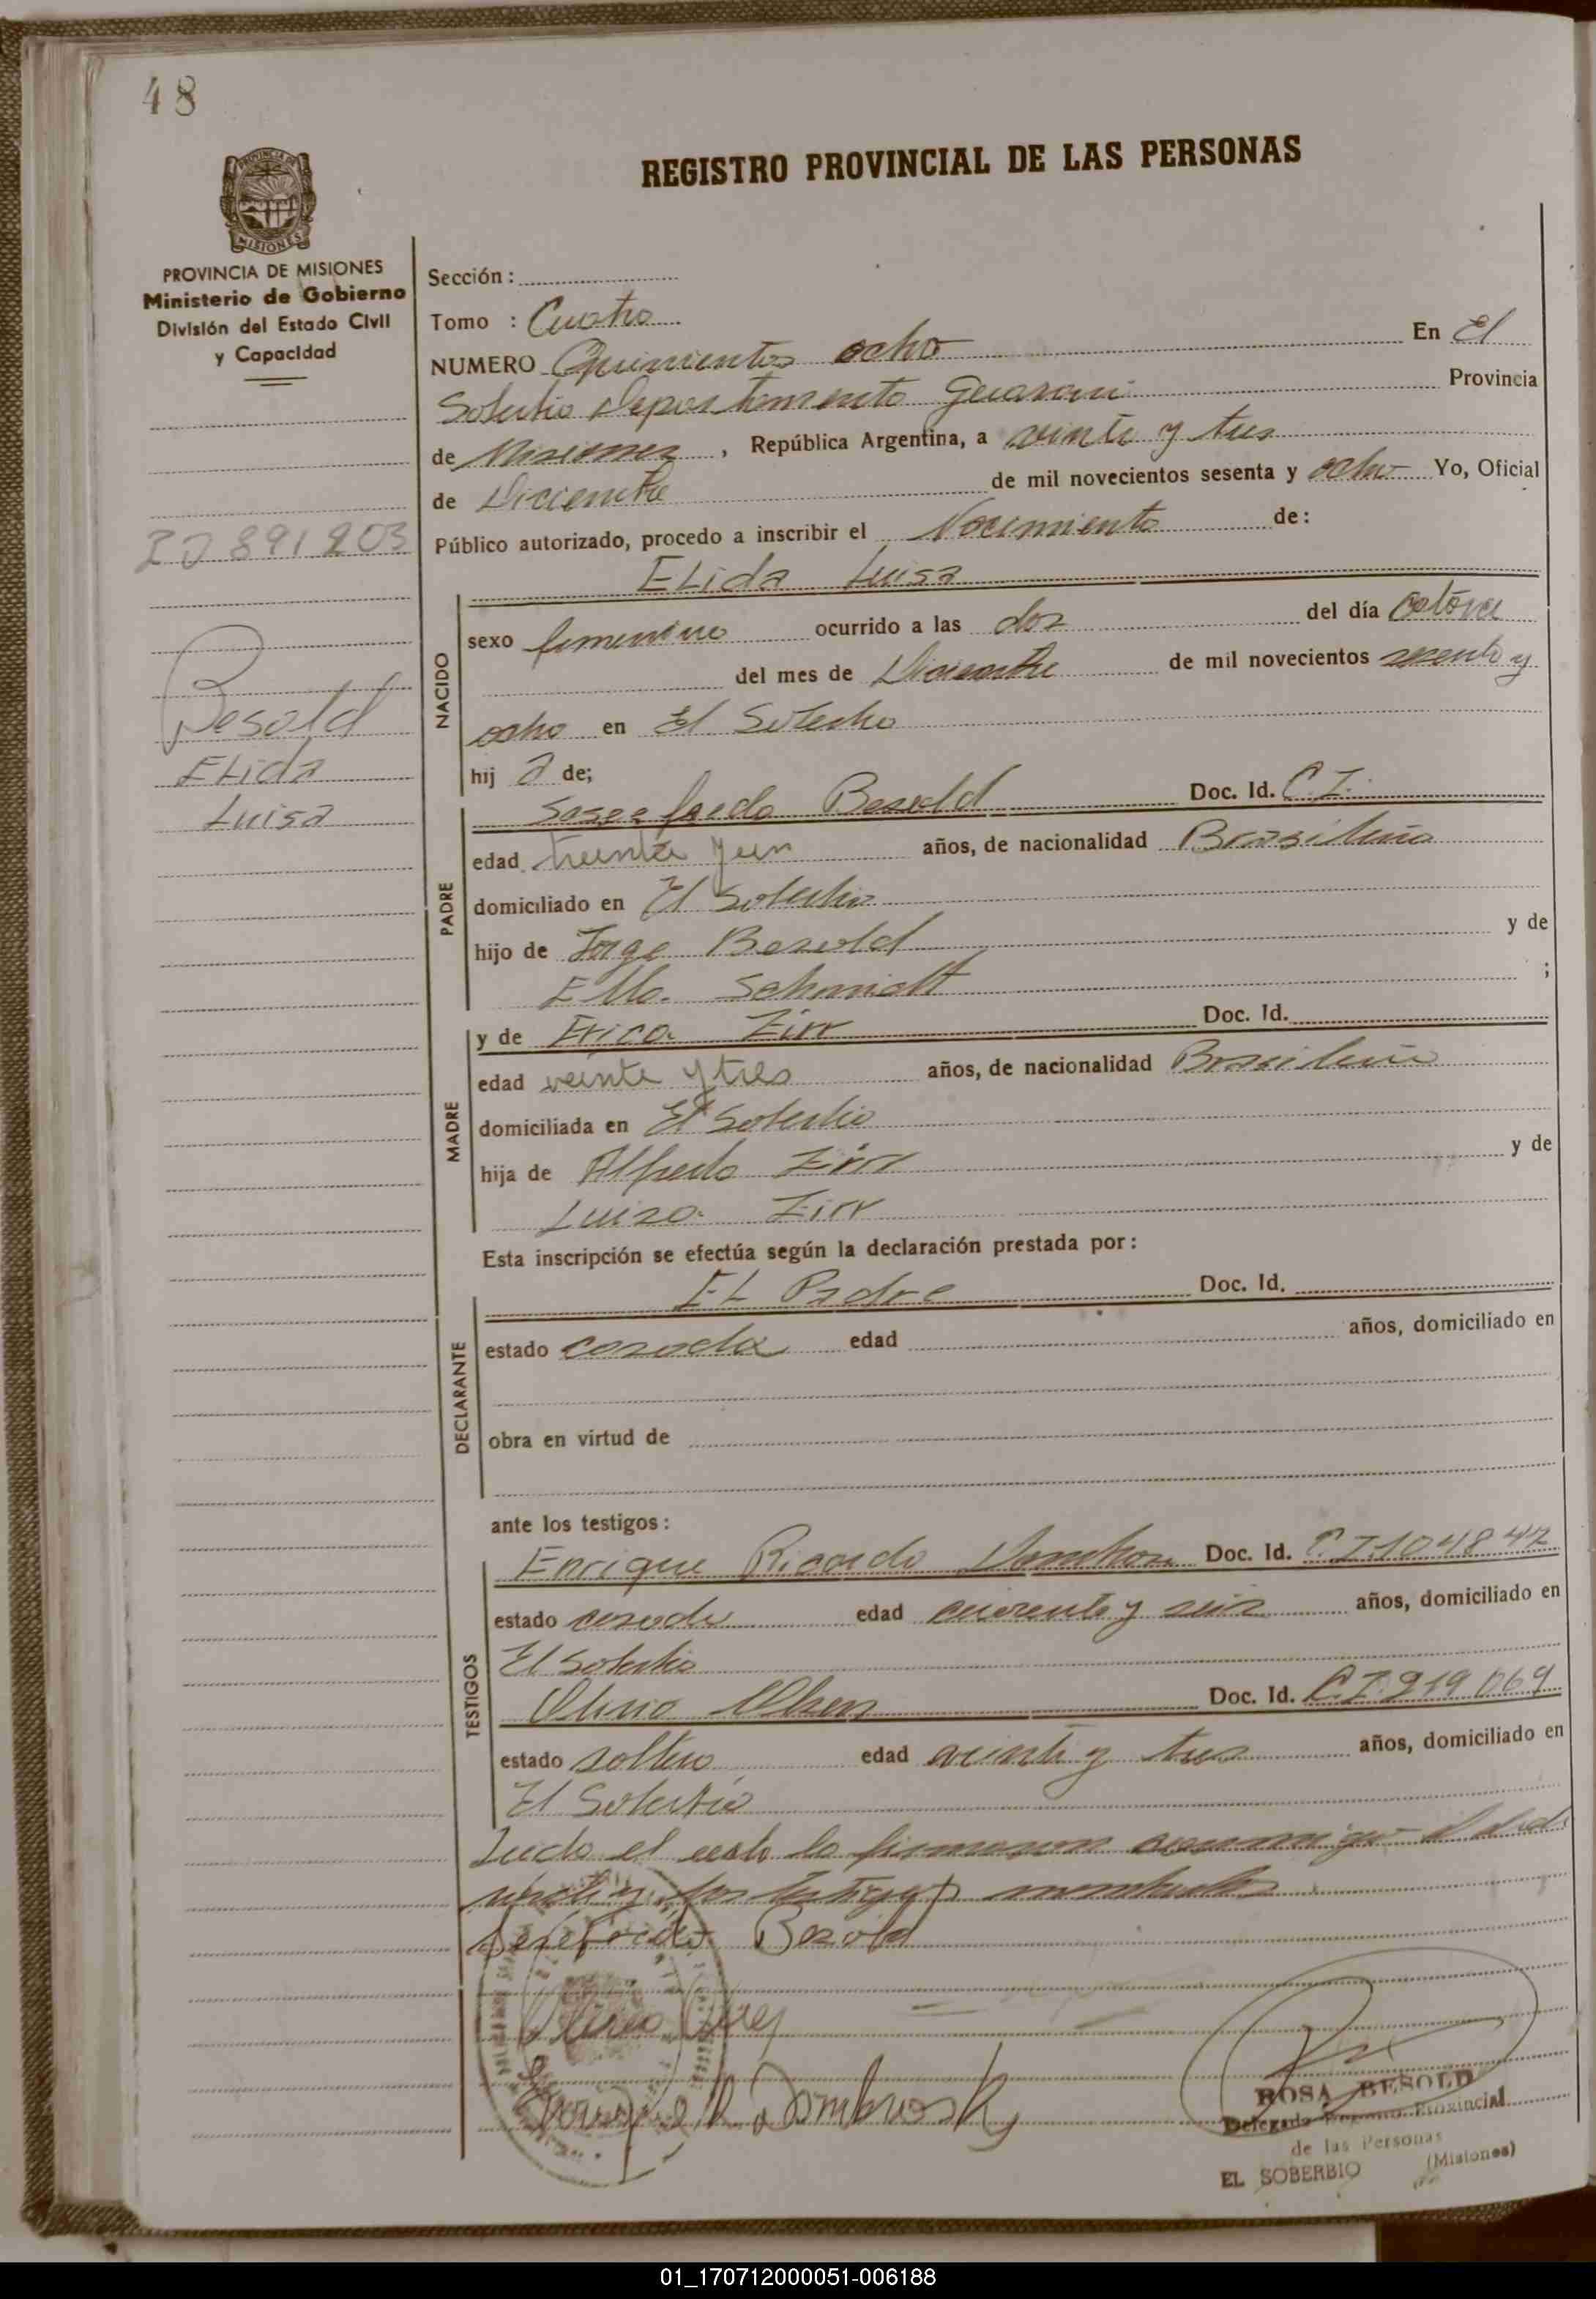 48
REGISTRO PROVINCIAL DE LAS PERSONAS
PROVINCIA DE MISIONES
MISIONES
PROVINCIA DE MISIONES
Ministerio de Gobierno
División del Estado Civil
y Capacidad
20891203
Besold
ELida
Luisa
Sección :
Tomo : Cuatro
NUMERO Quinientos ocho En El
Soberbio Departamento Guarani Provincia
de Misiones , República Argentina, a veinte y tres
de Diciembre de mil novecientos sesenta y ocho Yo, Oficial
Público autorizado, procedo a inscribir el Nacimiento de:
ELida Luisa
NACIDO
sexo femenino ocurrido a las dos del día catorce
del mes de Diciembre de mil novecientos sesenta y
ocho en El Soberbio
hij a de;
PADRE
Besold Doc. Id. C.I.
edad treinta y un años, de nacionalidad Brasileña
domiciliado en El Soberbio
hijo de Jorge Besold y de
Ella Schmidt ;
MADRE
y de Erica Zirr Doc. Id.
edad veinte y tres años, de nacionalidad Brasileña
domiciliada en El Soberbio
hija de Alfredo Zirr y de
Luisa Zirr
Esta inscripción se efectúa según la declaración prestada por :
DECLARANTE
EL Padre Doc. Id.
estado casado edad años, domiciliado en
obra en virtud de
ante los testigos :
TESTIGOS
Enrique Ricardo Doc. Id. C.I.
estado casado edad cuarenta y seis años, domiciliado en
El Soberbio
Olsen Doc. Id. C.I. 219 069
estado soltero edad veinte y tres años, domiciliado en
El Soberbio
Leida el acta la firmaron conmigo el decla
rante y los testigos nombrados
Besold
Enrique R. Dombrosky
ROSA BESOLD
Delegada Registro Provincial
de las Personas
EL SOBERBIO (Misiones)
01_170712000051-006188